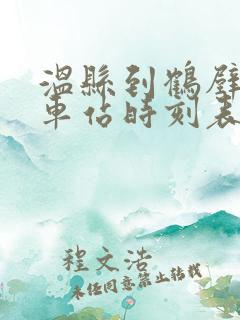 溫縣到鶴壁
車佔時刻表
程文浩
未经同意禁止转载